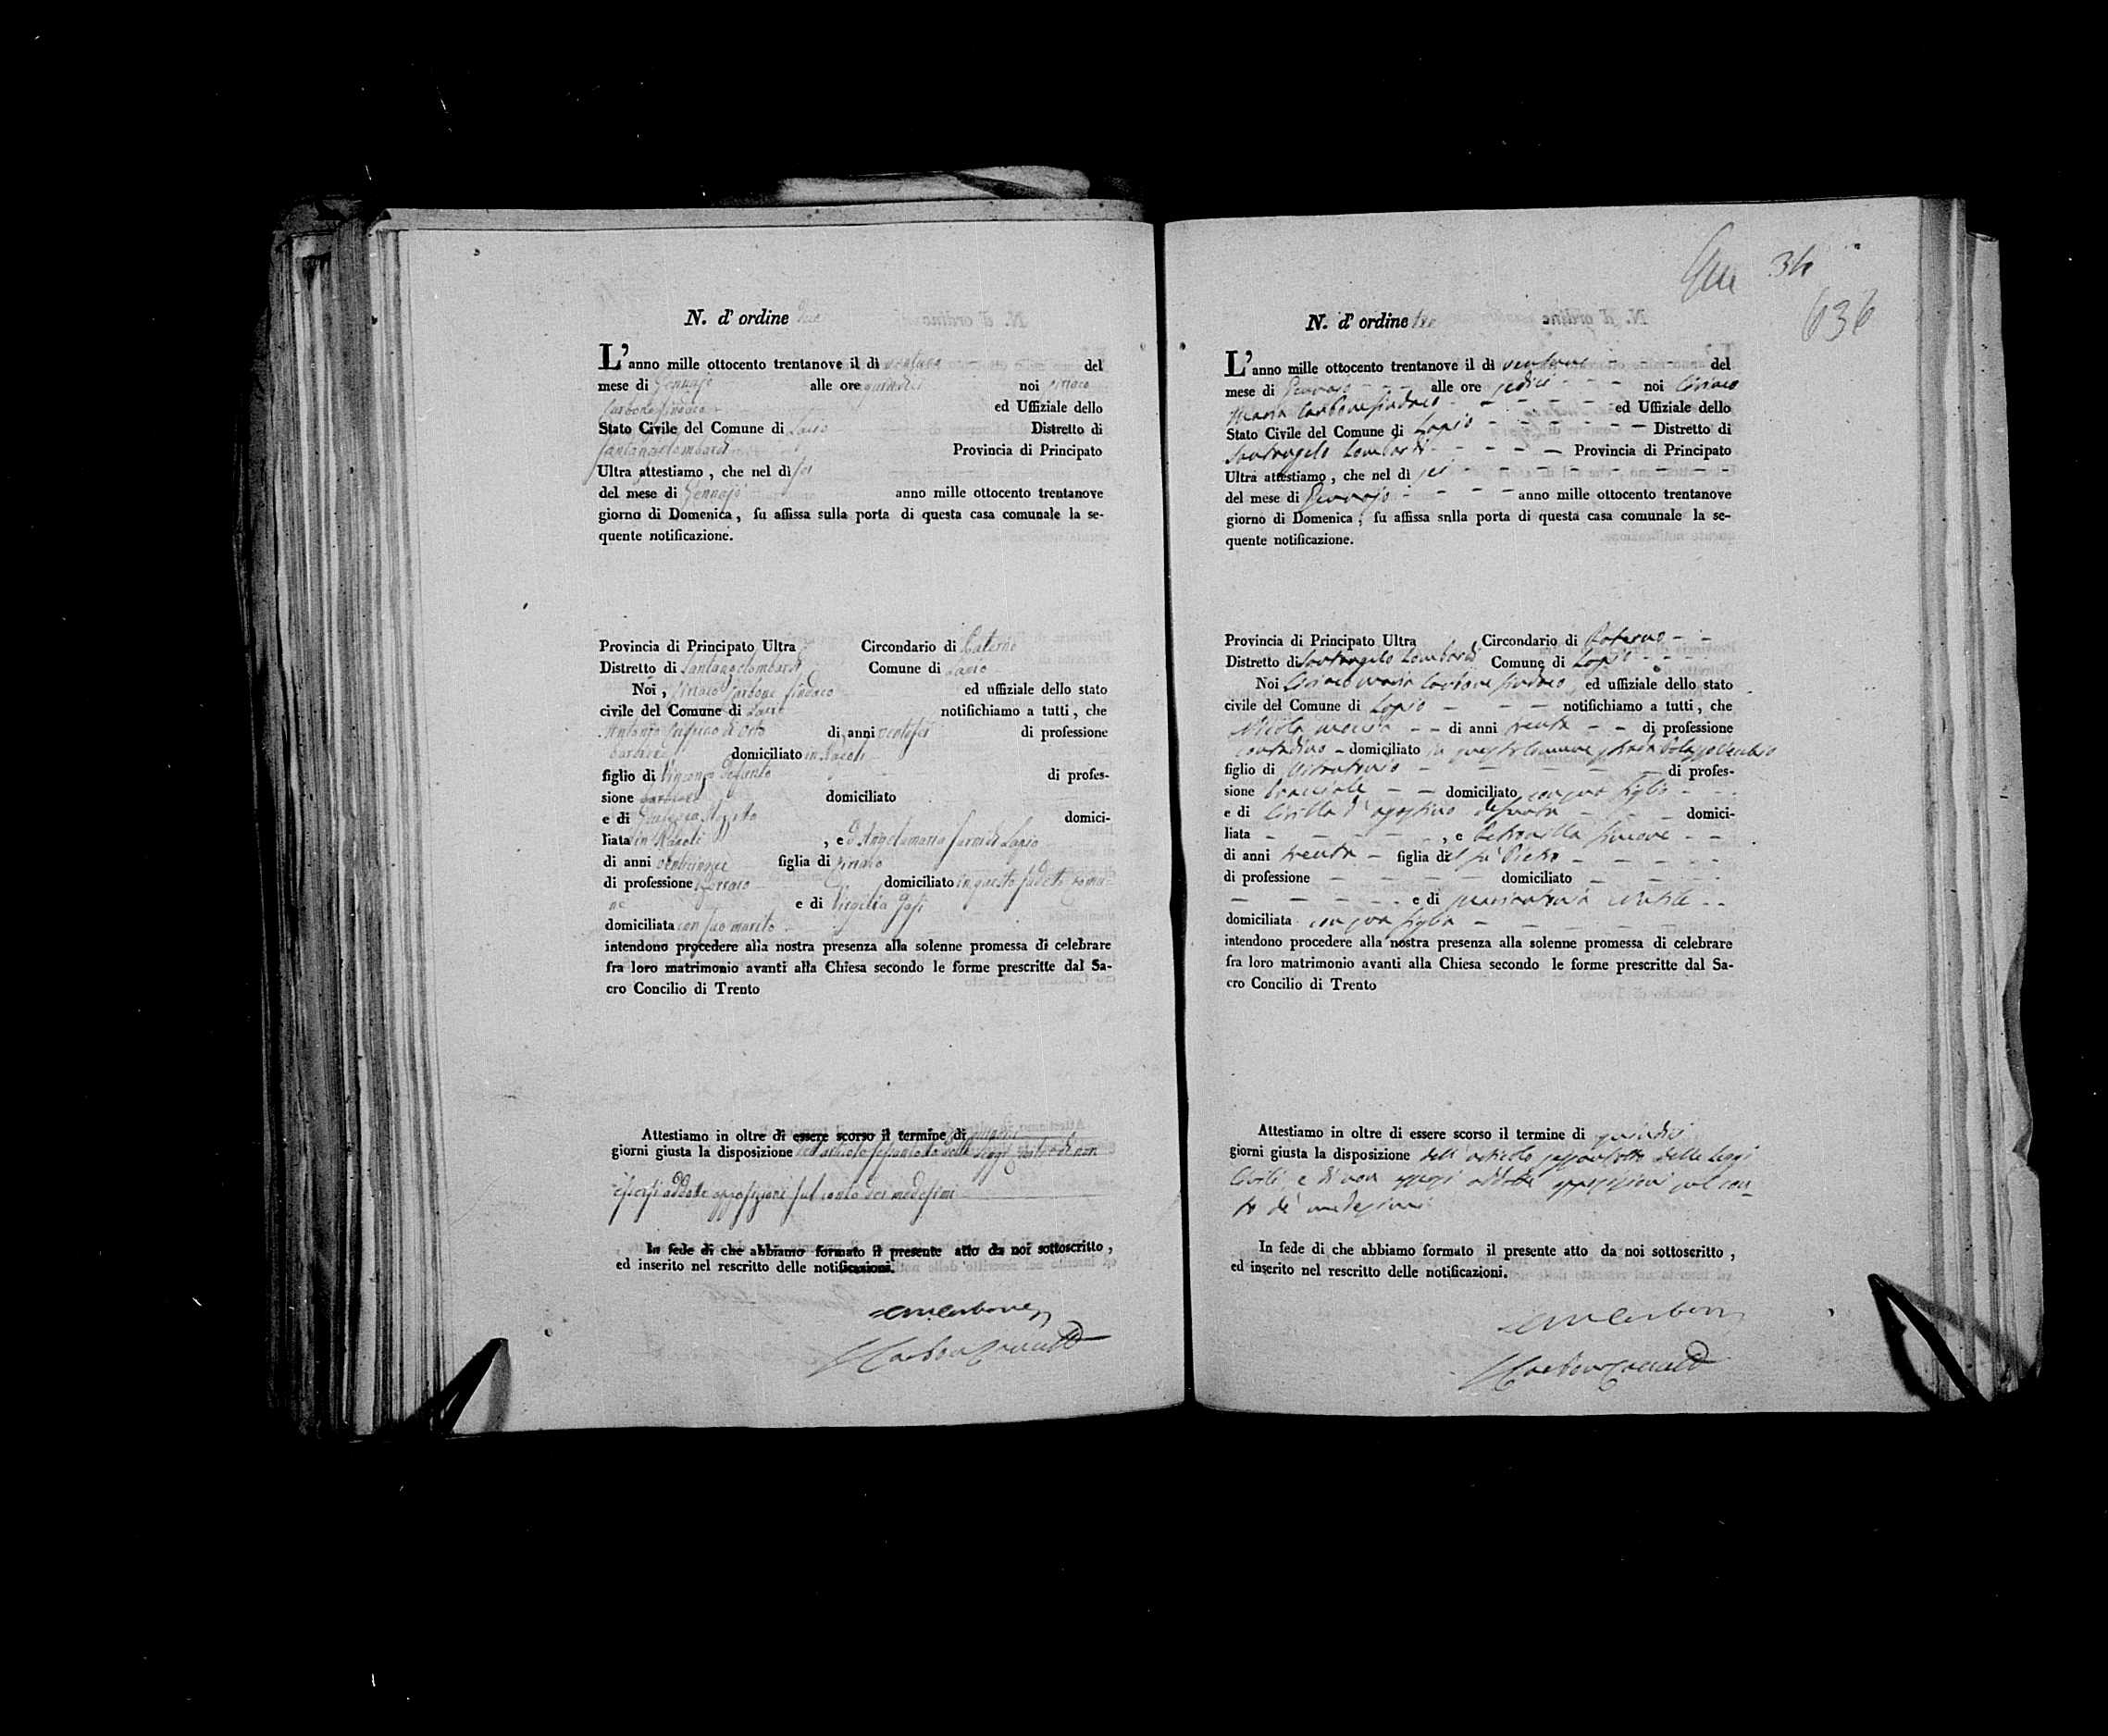 N. d' ordine due
L'anno mille ottocento trentanove il di ventuno del
mese di Gennajo alle ore quindici noi Ciriaco
Carbone Sindaco ed Uffiziale dello
Stato Civile del Comune di Lapio Distretto di
Santangelombardi Provincia di Principato
Ultra attestiamo, che nel dì sei
del mese di Gennajo anno mille ottocento trentanove
giorno di Domenica, fu affissa sulla porta di questa casa comunale la se-
quente notificazione.
Provincia di Principato Ultra Circondario di Paterno
Distretto di Santangelombardi Comune di Lapio
Noi, Ciriaco Carbone Sindaco ed uffiziale dello stato
civile del Comune di Lapio notifichiamo a tutti, che
Antonio di anni ventisei di professione
barbiere domiciliato in Napoli
figlio di Vincenzo Defunto di profes-
sione barbiere domiciliato
e di domici-
liata in Napoli , e D. Angelamaria di Lapio
di anni venticinque figlia di Ciriaco
di professione domiciliato in questo sudetto Comu-
ne e di Virgilia
domiciliata con suo marito
intendono procedere alla nostra presenza alla solenne promessa di celebrare
fra loro matrimonio avanti alla Chiesa secondo le forme prescritte dal Sa-
cro Concilio di Trento
Attestiamo in oltre di essere scorso il termine di quindici
giorni giusta la disposizione dell'articolo sessantotto delle leggi Civili e di non
essersi addotte opposizioni sul conto dei medesimi
In fede di che abbiamo formato il presente atto da noi sottoscritto,
ed inserito nel rescritto delle notificazioni.
CMCarbone
34
636
N. d' ordine tre
L'anno mille ottocento trentanove il di ventuno del
mese di Gennajo alle ore sedici noi Ciriaco
Maria Carbone Sindaco ed Uffiziale dello
Stato Civile del Comune di Lapio Distretto di
Santangelo Lombardi Provincia di Principato
Ultra attestiamo, che nel di sei
del mese di Gennajo anno mille ottocento trentanove
giorno di Domenica, fu affissa snlla porta di questa casa comunale la se-
quente notificazione.
Provincia di Principato Ultra Circondario di Paterno
Distretto di Santangelo Lombardi Comune di Lapio
Noi Ciriaco Maria Carbone Sindaco ed uffiziale dello stato
civile del Comune di Lapio notifichiamo a tutti, che
Nicola di anni trenta di professione
contadino domiciliato in questo Comune strada
figlio di di profes-
sione bracciale domiciliato con suo figlio
e di Civilla d'agostino defunta domici-
liata , e Petronilla Simeone
di anni trenta figlia del fu Pietro
di professione domiciliato
e di Mariantonia
domiciliata con sua figlia
intendono procedere alla nostra presenza alla solenne promessa di celebrare
fra loro matrimonio avanti alla Chiesa secondo le forme prescritte dal Sa-
cro Concilio di Trento
Attestiamo in oltre di essere scorso il termine di quindici
giorni giusta la disposizione dell'articolo sessantotto delle leggi
Civili, e di non essersi addotte opposizioni sul con-
to de' medesimi
In fede di che abbiamo formato il presente atto da noi sottoscritto,
ed inserito nel rescritto delle notificazioni.
CMCarbone